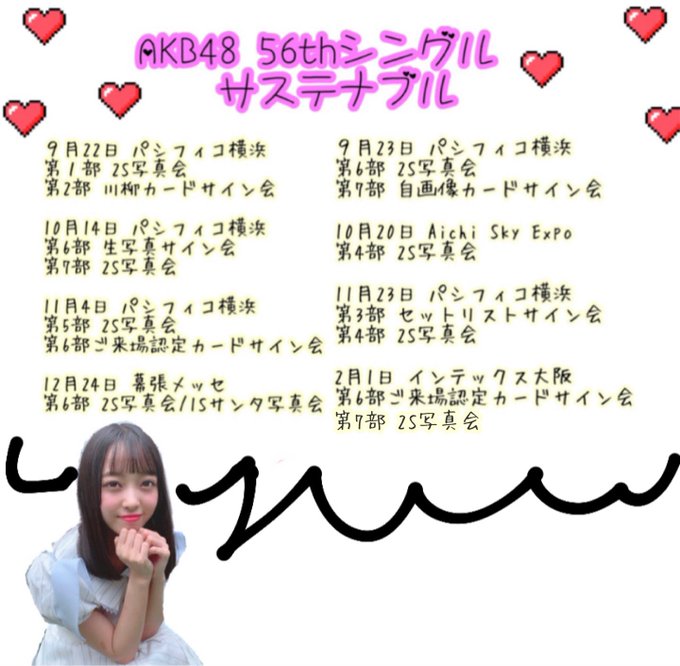 AKB48 56thシングル
サステナブル
9月22日 パシフィコ横浜
第1部 2S写真会
第2部 川柳カードサイン会
10月14日 パシフィコ横浜
第6部 生写真サイン会
第7部 2S写真会
11月4日 パシフィコ横浜
第5部 2S写真会
第6部ご来場認定カードサイン会
12月24日 幕張メッセ
第6部 2S写真会/1Sサンタ写真会
9月23日 パシフィコ横浜
第6部 2S写真会
第7部 自画像カードサイン会
10月20日 Aichi Sky Expo
第4部 2S写真会
11月23日 パシフィコ横浜
第3部 セットリストサイン会
第4部 2S写真会
2月1日 インテックス大阪
第6部ご来場認定カードサイン会
第7部 2S写真会